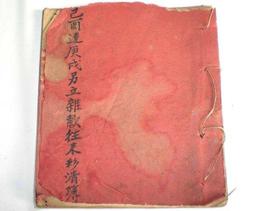 己酉連庚戌另立雜款往来抄清簿